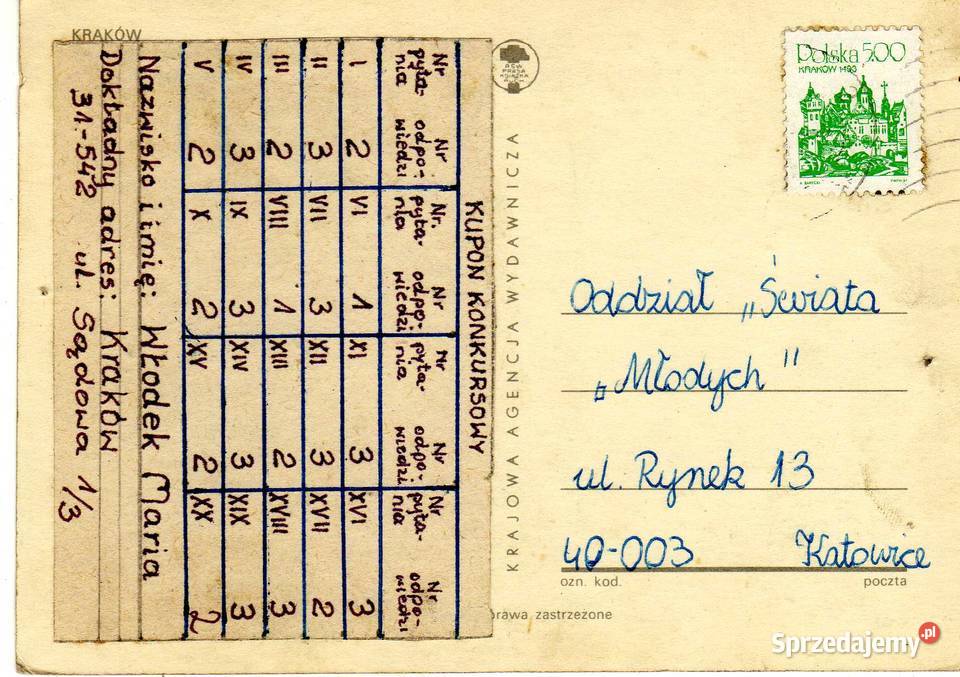 KRAKÓW
KUPON KONKURSOWY
Nr pyta- nia Nr odpo- wiedzi Nr. pyta- nia Nr odpo- wiedzi Nr pyta- nia Nr odpo- wiedzi Nr pyta- nia Nr odpo- wiedzi
I 2 VI 1 XI 3 XVI 3
II 3 VII 3 XII 3 XVII 2
III 2 VIII 1 XIII 2 XVIII 3
IV 3 IX 3 XIV 3 XIX 3
V 2 X 2 XV 2 XX 2
Nazwisko i imię: Włodek Maria
Dokładny adres: Kraków
31-542 ul. Sądowa 1/3
RSW
PRASA
KSIĄŻKA
RUCH
KRAJOWA AGENCJA WYDAWNICZA
Polska 5.00
KRAKÓW 1493
Oddział „Świata
„Młodych"
ul. Rynek 13
40-003 Katowice
ozn. kod. poczta
rawa zastrzeżone
Sprzedajemy.pl